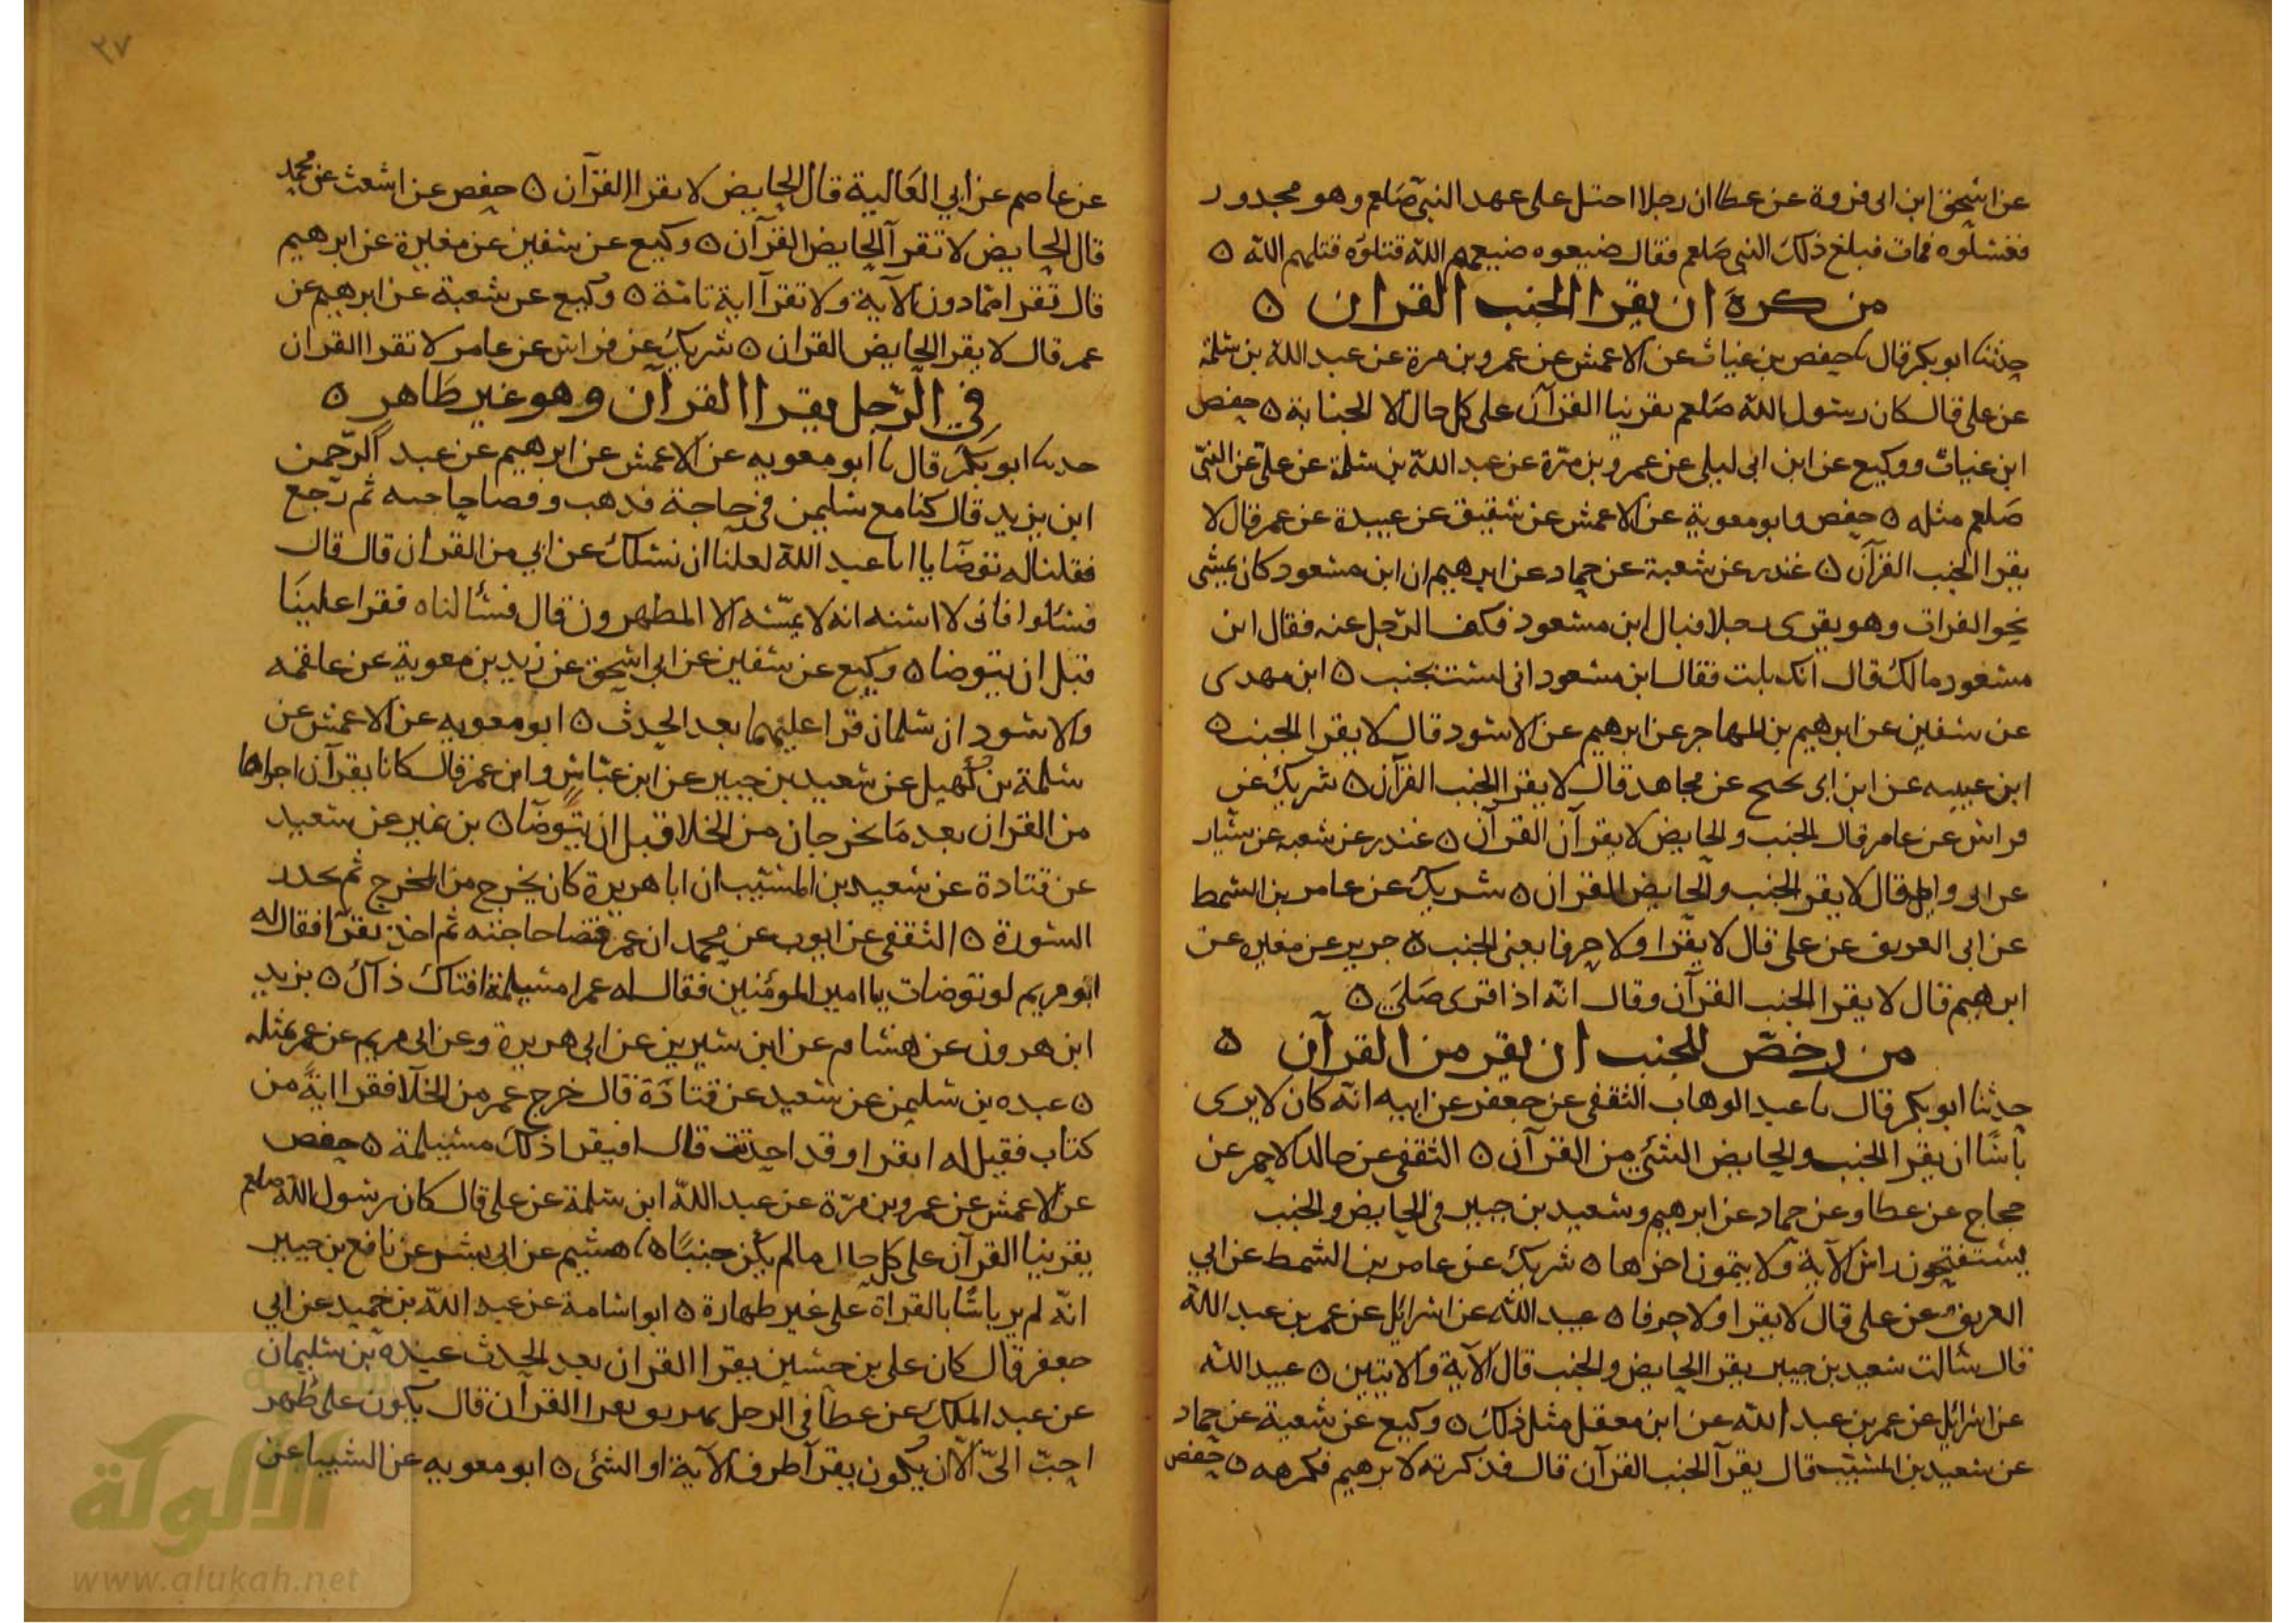 عن اسحق ابن ابى فروة عن عطا ان رجلا احتلم على عهد النبى صلعم وهو مجدور
فغسلوه فمات فبلغ ذلك النبى صلعم فقال ضيعوه ضيعهم الله قتلوه قتلهم الله ٥
من كره ان يقرا الجنب القران ٥
حدثنا ابو بكر قال نا حفص بن غياث عن الاعمش عن عمرو بن مرة عن عبد الله بن سلمة
عن على قال كان رسول الله صلعم يقرينا القرآن على كل حال الا الجنابة ٥ حفص
ابن غياث ووكيع عن ابن ابى ليلى عن عمرو بن مرّة عن عبد الله بن سلمة عن على عن النبى
صلعم مثله ٥ حفص وابو معوية عن الاعمش عن شقيق عن عبيدة عن عمر قال لا
يقرا الجنب القرآن ٥ غندر عن شعبة عن حماد عن ابرهيم ان ابن مسعود كان يمشى
نحو الفرات وهو يقرى رجلا فبال ابن مسعود فكف الرجل عنه فقال ابن
مسعود مالك قال انك بلت فقال ابن مسعود انى لست بجنب ٥ ابن مهدى
عن سفين عن ابرهيم بن المهاجر عن ابرهيم عن الاسود قال لا يقرا الجنب ٥
ابن عيينه عن ابن ابى نجيح عن مجاهد قال لا يقرا الجنب القرآن ٥ شريك عن
فراس عن عامر قال الجنب والحايض لا يقرآن القرآن ٥ غندر عن شعبه عن سيار
عن ابى وايل قال لا يقرا الجنب والحايض القران ٥ شريك عن عامر بن السمط
عن ابى الغريف عن على قال لا يقرا ولا حرفا يعنى الجنب ٥ جرير عن مغيرة عن
ابرهيم قال لا يقرا الجنب القرآن وقال انه اذا قرى صلى ٥
من رخصّ للجنب ان يقر من القرآن ٥
حدثنا ابو بكر قال نا عبد الوهاب الثقفى عن جعفر عن ابيه انه كان لا يرى
بأسًا ان يقرا الجنب والحايض الشئ من القرآن ٥ الثقفى عن خالد الاحمر عن
حجاج عن عطا وعن حماد عن ابرهيم وسعيد بن جبير فى الحايض والجنب
يستفتحون راس الآية ولا يتمون اخرها ٥ شريك عن عامر بن السمط عن ابي
الغريف عن على قال لا يقرا ولا حرفا ٥ عبيد الله عن اسرائيل عن عمر بن عبد الله
قال سالت سعيد بن جبير يقرا الحايض والجنب قال الآية والايتين ٥ عبيد الله
عن اسرائيل عن عمر بن عبد الله عن ابن معقل مثل ذلك ٥ وكيع عن شعبة عن حماد
عن سعيد بن المسيب قال يقرآ الجنب القرآن قال فذكرته لابرهيم فكرهه ٥ حفص
٣٧
عن عاصم عن ابي العالية قال الحايض لا يقرا القرآن ٥ حفص عن اشعث عن محمد
قال الحايض لا تقرآ الحايض القرآن ٥ وكيع عن سفين عن مغيرة عن ابرهيم
قال تقرا ما دون الآية ولا تقرآ اية تامة ٥ وكيع عن شعبة عن ابرهيم عن
عمر قال لا يقرا الحايض القران ٥ شريك عن فراس عن عامر لا تقرا القران
في الرّجل يقرا القرآن وهو غير طاهر ٥
حدثنا ابو بكر قال نا ابو معويه عن الاعمش عن ابرهيم عن عبد الرّحمن
ابن يزيد قال كنا مع سليمن فى حاجة فذهب وقضا حاجته ثم رجع
فقلنا له توضا يا ابا عبد الله لعلنا ان نسلك عن اي من القران قال قال
فسئلوا فانى لا امسه انه لا يمسّه الا المطهرون قال فسئالناه فقرا علينا
قبل ان يتوضا ٥ وكيع عن سفين عن ابي اسحق عن زيد بن معوية عن علقمه
والاسود ان سلمان قرا عليهما بعد الحدث ٥ ابو معويه عن الاعمش عن
سلمة بن كهيل عن سعيد بن جبير عن ابن عباس وابن عمر قال كانا يقرآن اجزاهما
من القران بعد ما يخرجان من الخلا قبل ان يتوضا ٥ بن نمير عن سعيد
عن قتادة عن سعيد بن المسيّب ان ابا هريرة كان يخرج من المخرج ثم يحدر
السورة ٥ الثقفى عن ايوب عن محمد ان عمر قضا حاجته ثم اخذ يقرآ فقال له
ابو مريم لو توضات يا امير المؤمنين فقال له عمر امسيلمة افتاك ذاك ٥ يزيد
ابن هرون عن هشام عن ابن سيرين عن ابي هريرة وعن ابى مريم عن عمر بمثله
٥ عبده بن سليمن عن سعيد عن قتادة قال خرج عمر من الخلا فقرا اية من
كتاب فقيل له اتقرا وقد احدثت قال افيقرا ذلك مسيلمة ٥ حفص
عن الاعمش عن عمرو بن مرّة عن عبد الله ابن سلمة عن على قال كان رسول الله صلعم
يقرينا القرآن على كل حال ما لم يكن جنبًا ٥ نا هشيم عن ابى بشر عن نافع بن جبير
انه لم ير باسًا بالقراة على غير طهارة ٥ ابو اسامة عن عبد الله بن حميد عن ابي
جعفر قال كان على بن حسين يقرا القران بعد الحدث عبدة بن سليمان
عن عبد الملك عن عطا في الرجل يهريق يقرا القرآن قال يكون على طهر
احبّ الىّ الا ان يكون يقرآ طرف الآية او الشئ ٥ ابو معويه عن الشيبا عن
الألوكة
www.alukah.net